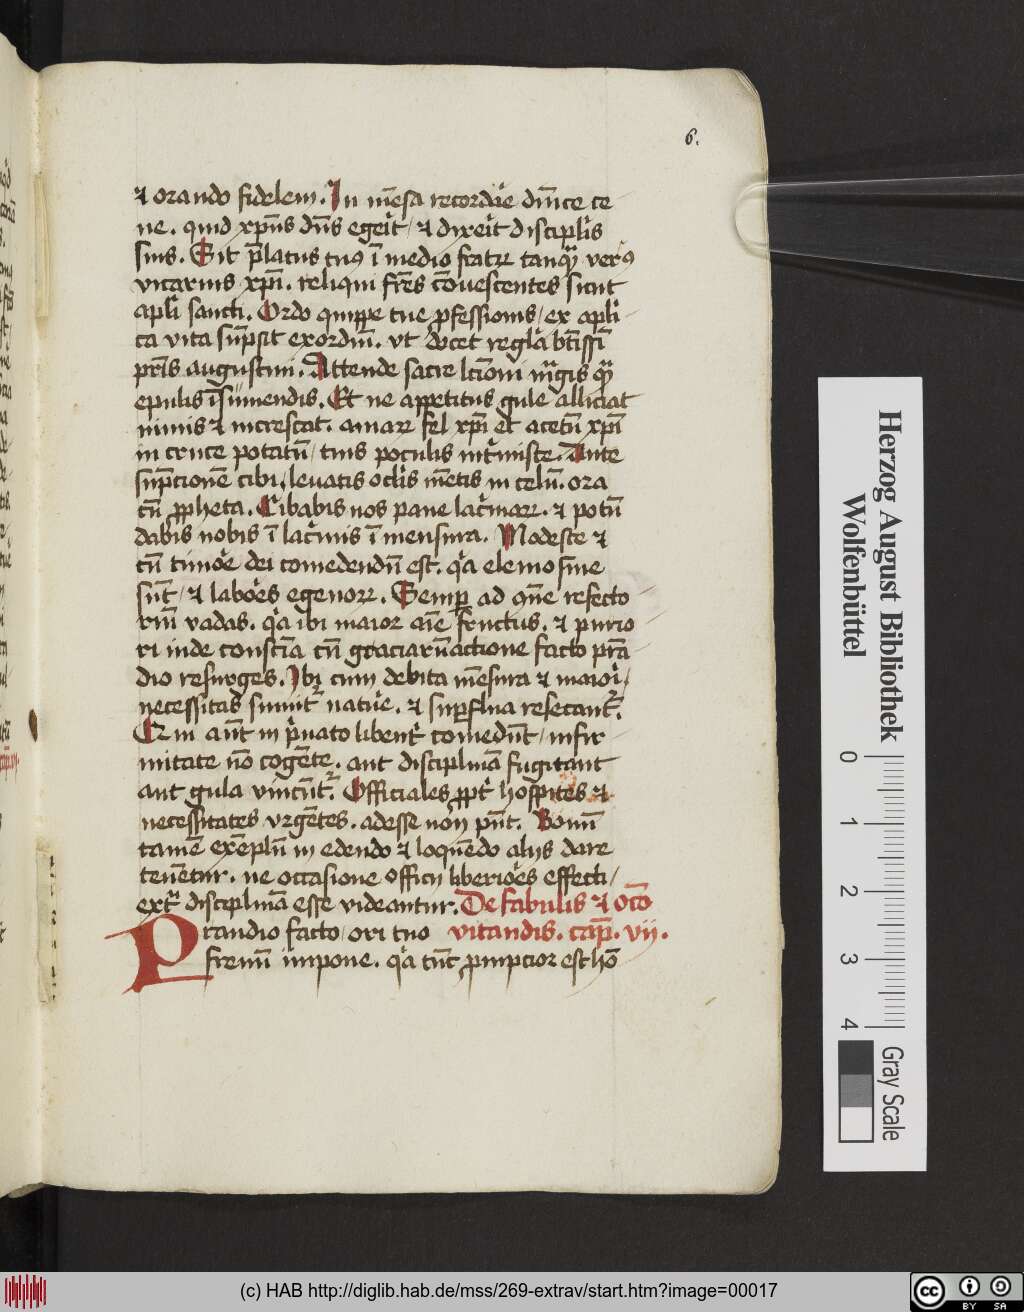 6.
⁊ orando fidelem. In mēsa recordāīe dn̄ice ce
ne. quid xp̄us dn̄s egeīt / ⁊ dixeīt discipl̄is
suis. Sit p̄latus tuꝰ ī medio fratꝝ tanqͣꝫ verꝰ
vicarius xp̄i. reliqui fr̄es cōuescentes sicut
apl̄i sancti. Ordo quippe tue ꝓfessionis / ex apl̄i
ca vita sūpsit exordiū. vt docet regla bt̄issi
pr̄is augustini. Attende sacre lc̄ioni mͣgis qͣꝫ
epulis īsumendis. Et ne appetitus gule alliciat
nimis ⁊ increscat. amaꝝ fel xp̄i et acetū xp̄i
in cruce potatū / tuis poculis int̄miste. Ante
sūpcionem cibi, leuatis oclis mētis in celū. ora
cū ꝓpheta. Cibabis nos pane lac̄maꝝ. ⁊ potū
dabis nobis ī lac̄mis ī mensura. Modeste ⁊
cū timōe dei comedendū est. qͣa elemosine
sūt / ⁊ labōes egenoꝝ. Semꝑ ad qm̄e refecto
riū vadas. qͣa ibi maior aīe fructus. ⁊ purio
ri inde consciā cū graciaꝝactione facto prā
dio resurges. Ibi cum debita mēsura ⁊ maiori /
necessitas sumit natūe. ⁊ suꝑflua resecant̄.
Qͥ ni aūt in pͥuato libent̄ comedūt / infir
mitate nō cogēte. aut disciplinā fugitant
aut gula vincūt̄. Officiales ꝓpt̄ hospites ⁊
necessitates vrgētes. adesse non pn̄t. Bonū
tamē exēplū in edendo ⁊ loquēdo alijs dare
tenētur. ne occasione officij liberiōes effecti /
ext̄ disciplinā esse videantur. De fabulis ⁊ ocō
Prandio facto / ori tuo vitandis. cap̄. vij.
frenū impone. qͣa tūc ꝓmpcior est hō
Herzog August Bibliothek
Wolfenbüttel
0 1 2 3 4
Gray Scale
(c) HAB http://diglib.hab.de/mss/269-extrav/start.htm?image=00017
cc BY SA